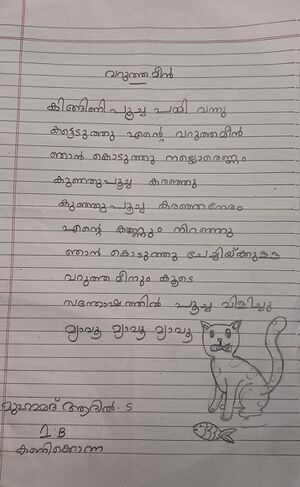 വറുത്ത മീൻ
കിങ്ങിണി പൂച്ച പമ്മി വന്നു
കട്ടെടുത്തു എന്റെ വറുത്തമീൻ
ഞാൻ കൊടുത്തു നല്ലൊരെണ്ണം
കുഞ്ഞുപൂച്ച കരഞ്ഞു
കുഞ്ഞുപൂച്ച കരഞ്ഞനേരം
എന്റെ കണ്ണും നിറഞ്ഞു
ഞാൻ കൊടുത്തു
വറുത്ത മീനും കൂടെ
സന്തോഷത്തിൽ പൂച്ച വിളിച്ചു
മ്യാവൂ മ്യാവൂ മ്യാവൂ
മുഹമ്മദ് ആദിൽ. S
1 B
കണിക്കൊന്ന